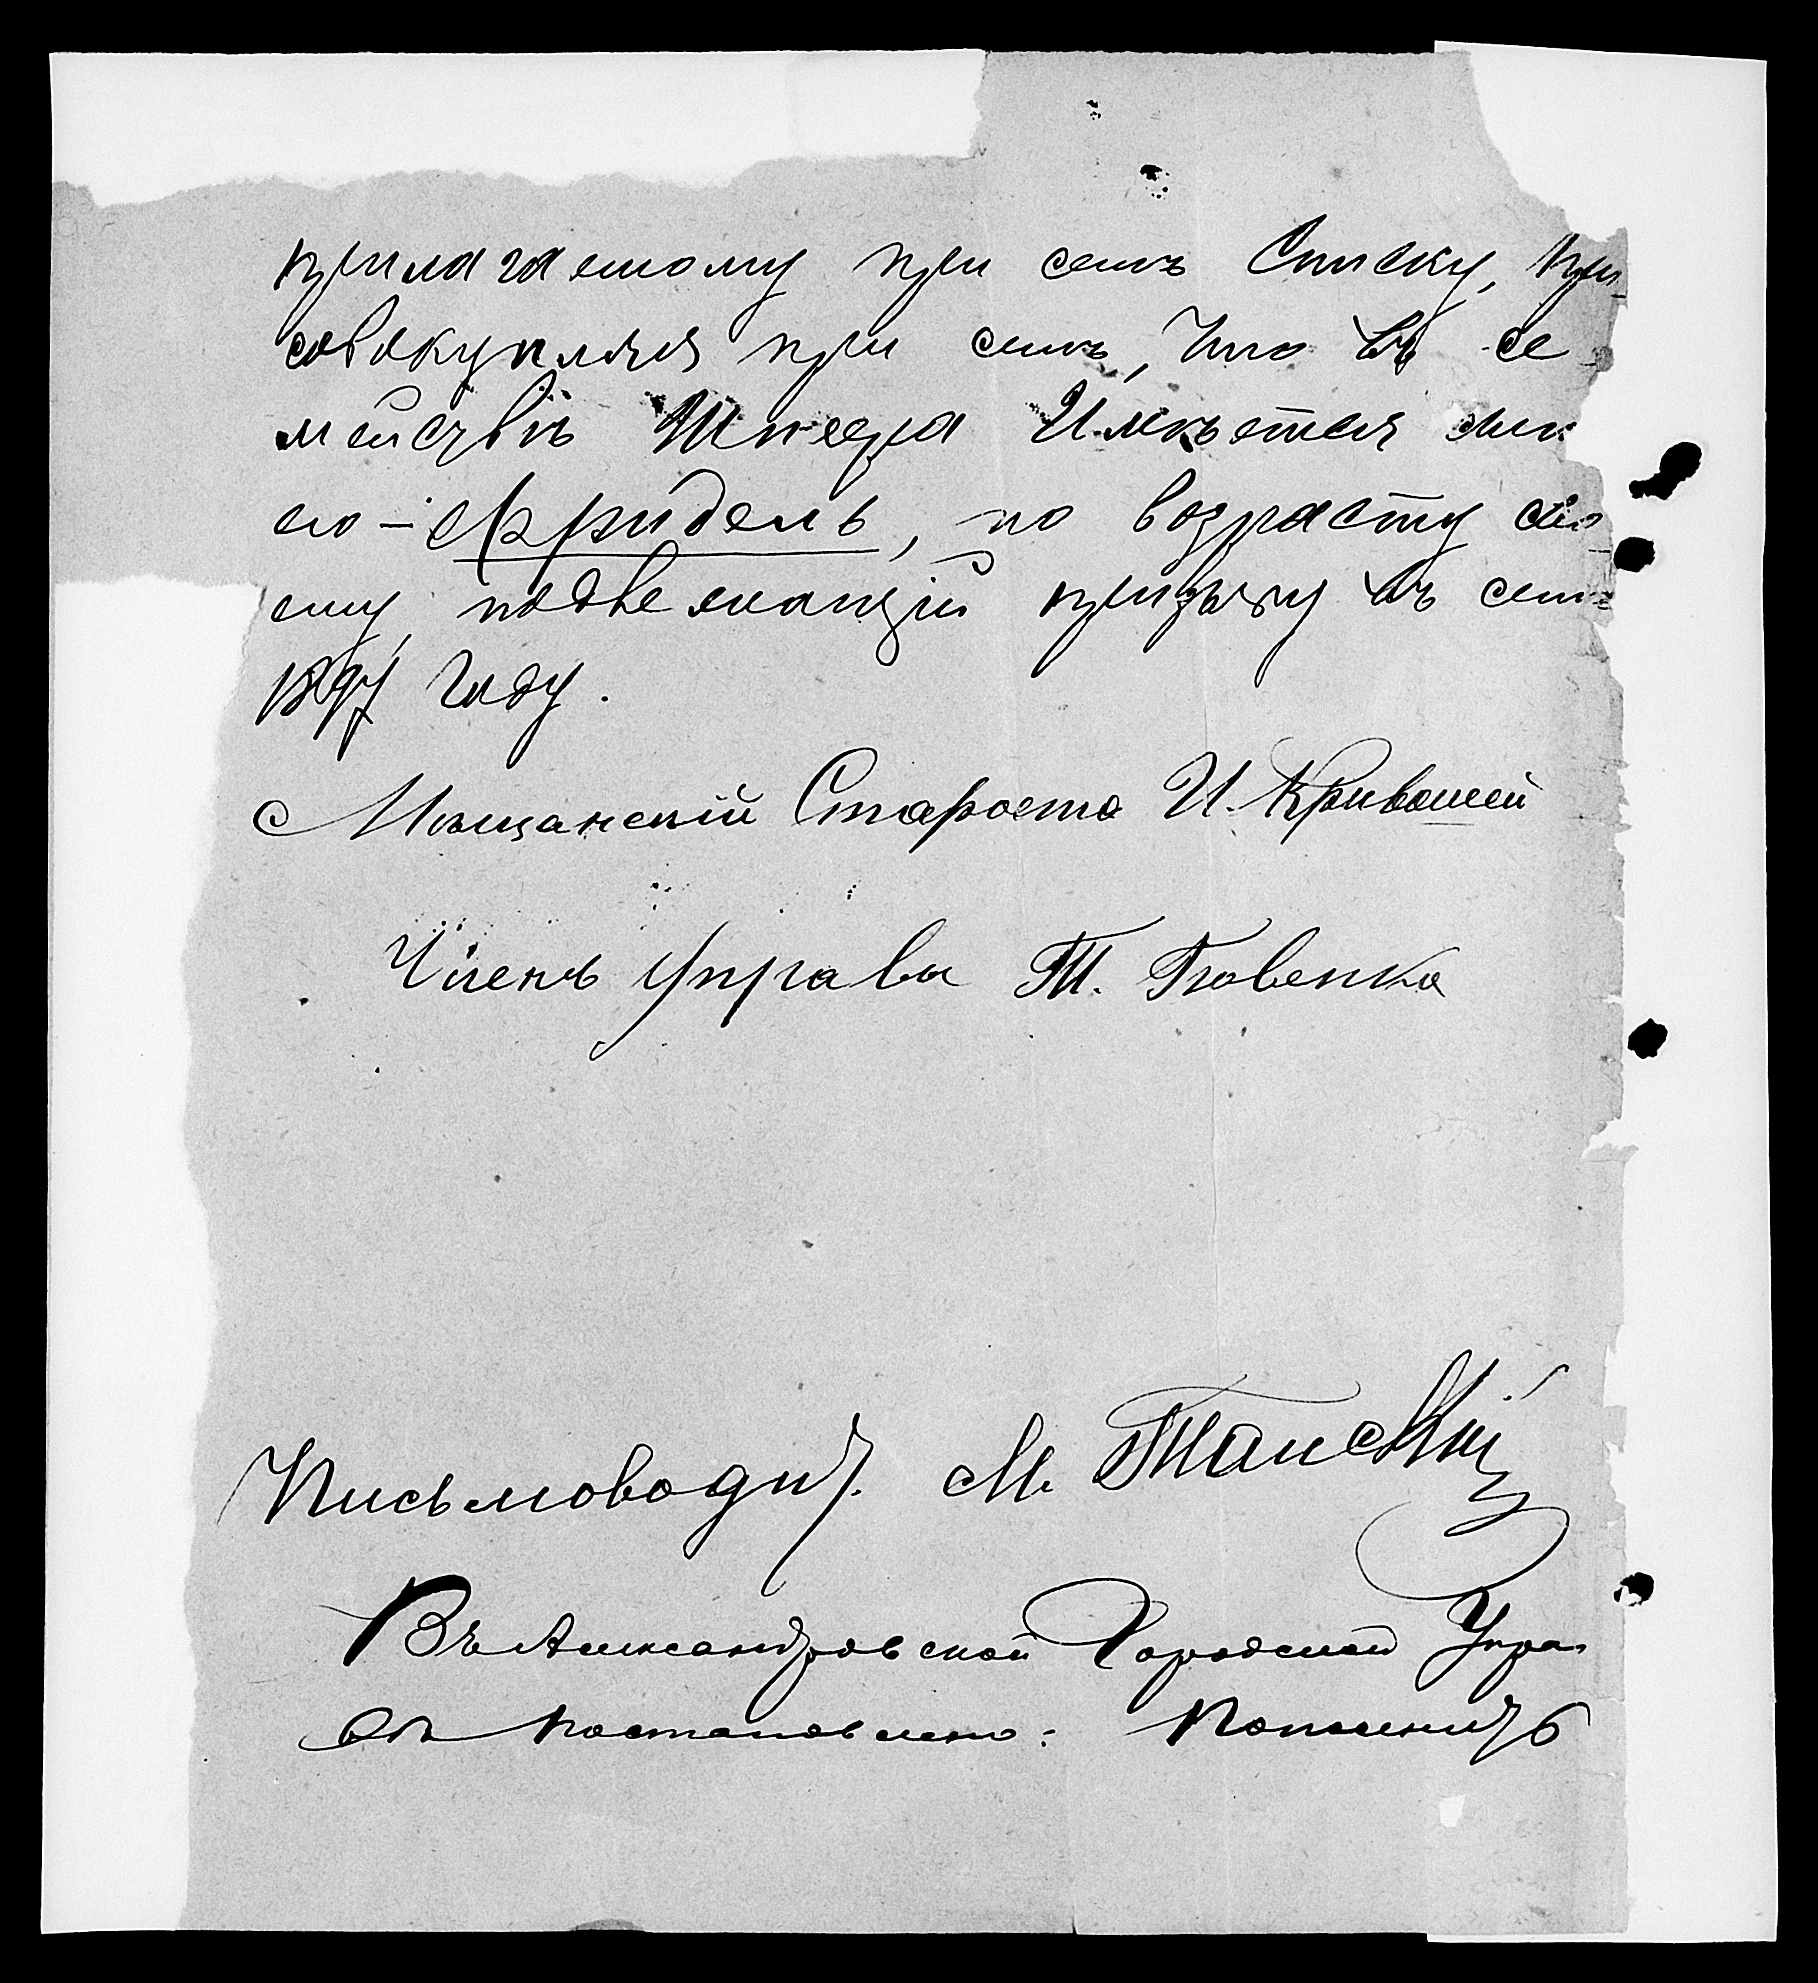 прилагаемому при семъ списку, при-
совокупляя при семъ, что въ се
мействѣ Шнеера Имѣется сын
его - Фридель, по возрасту сво-
ему, подлежащій призыву въ семъ
1897 году.
Мѣщанскій Староста И. Кривошей
Членъ управы Т. Бовенко
Письмоводит. М. Танскій
Въ Александровской Городской Упра-
вѣ постановлено: